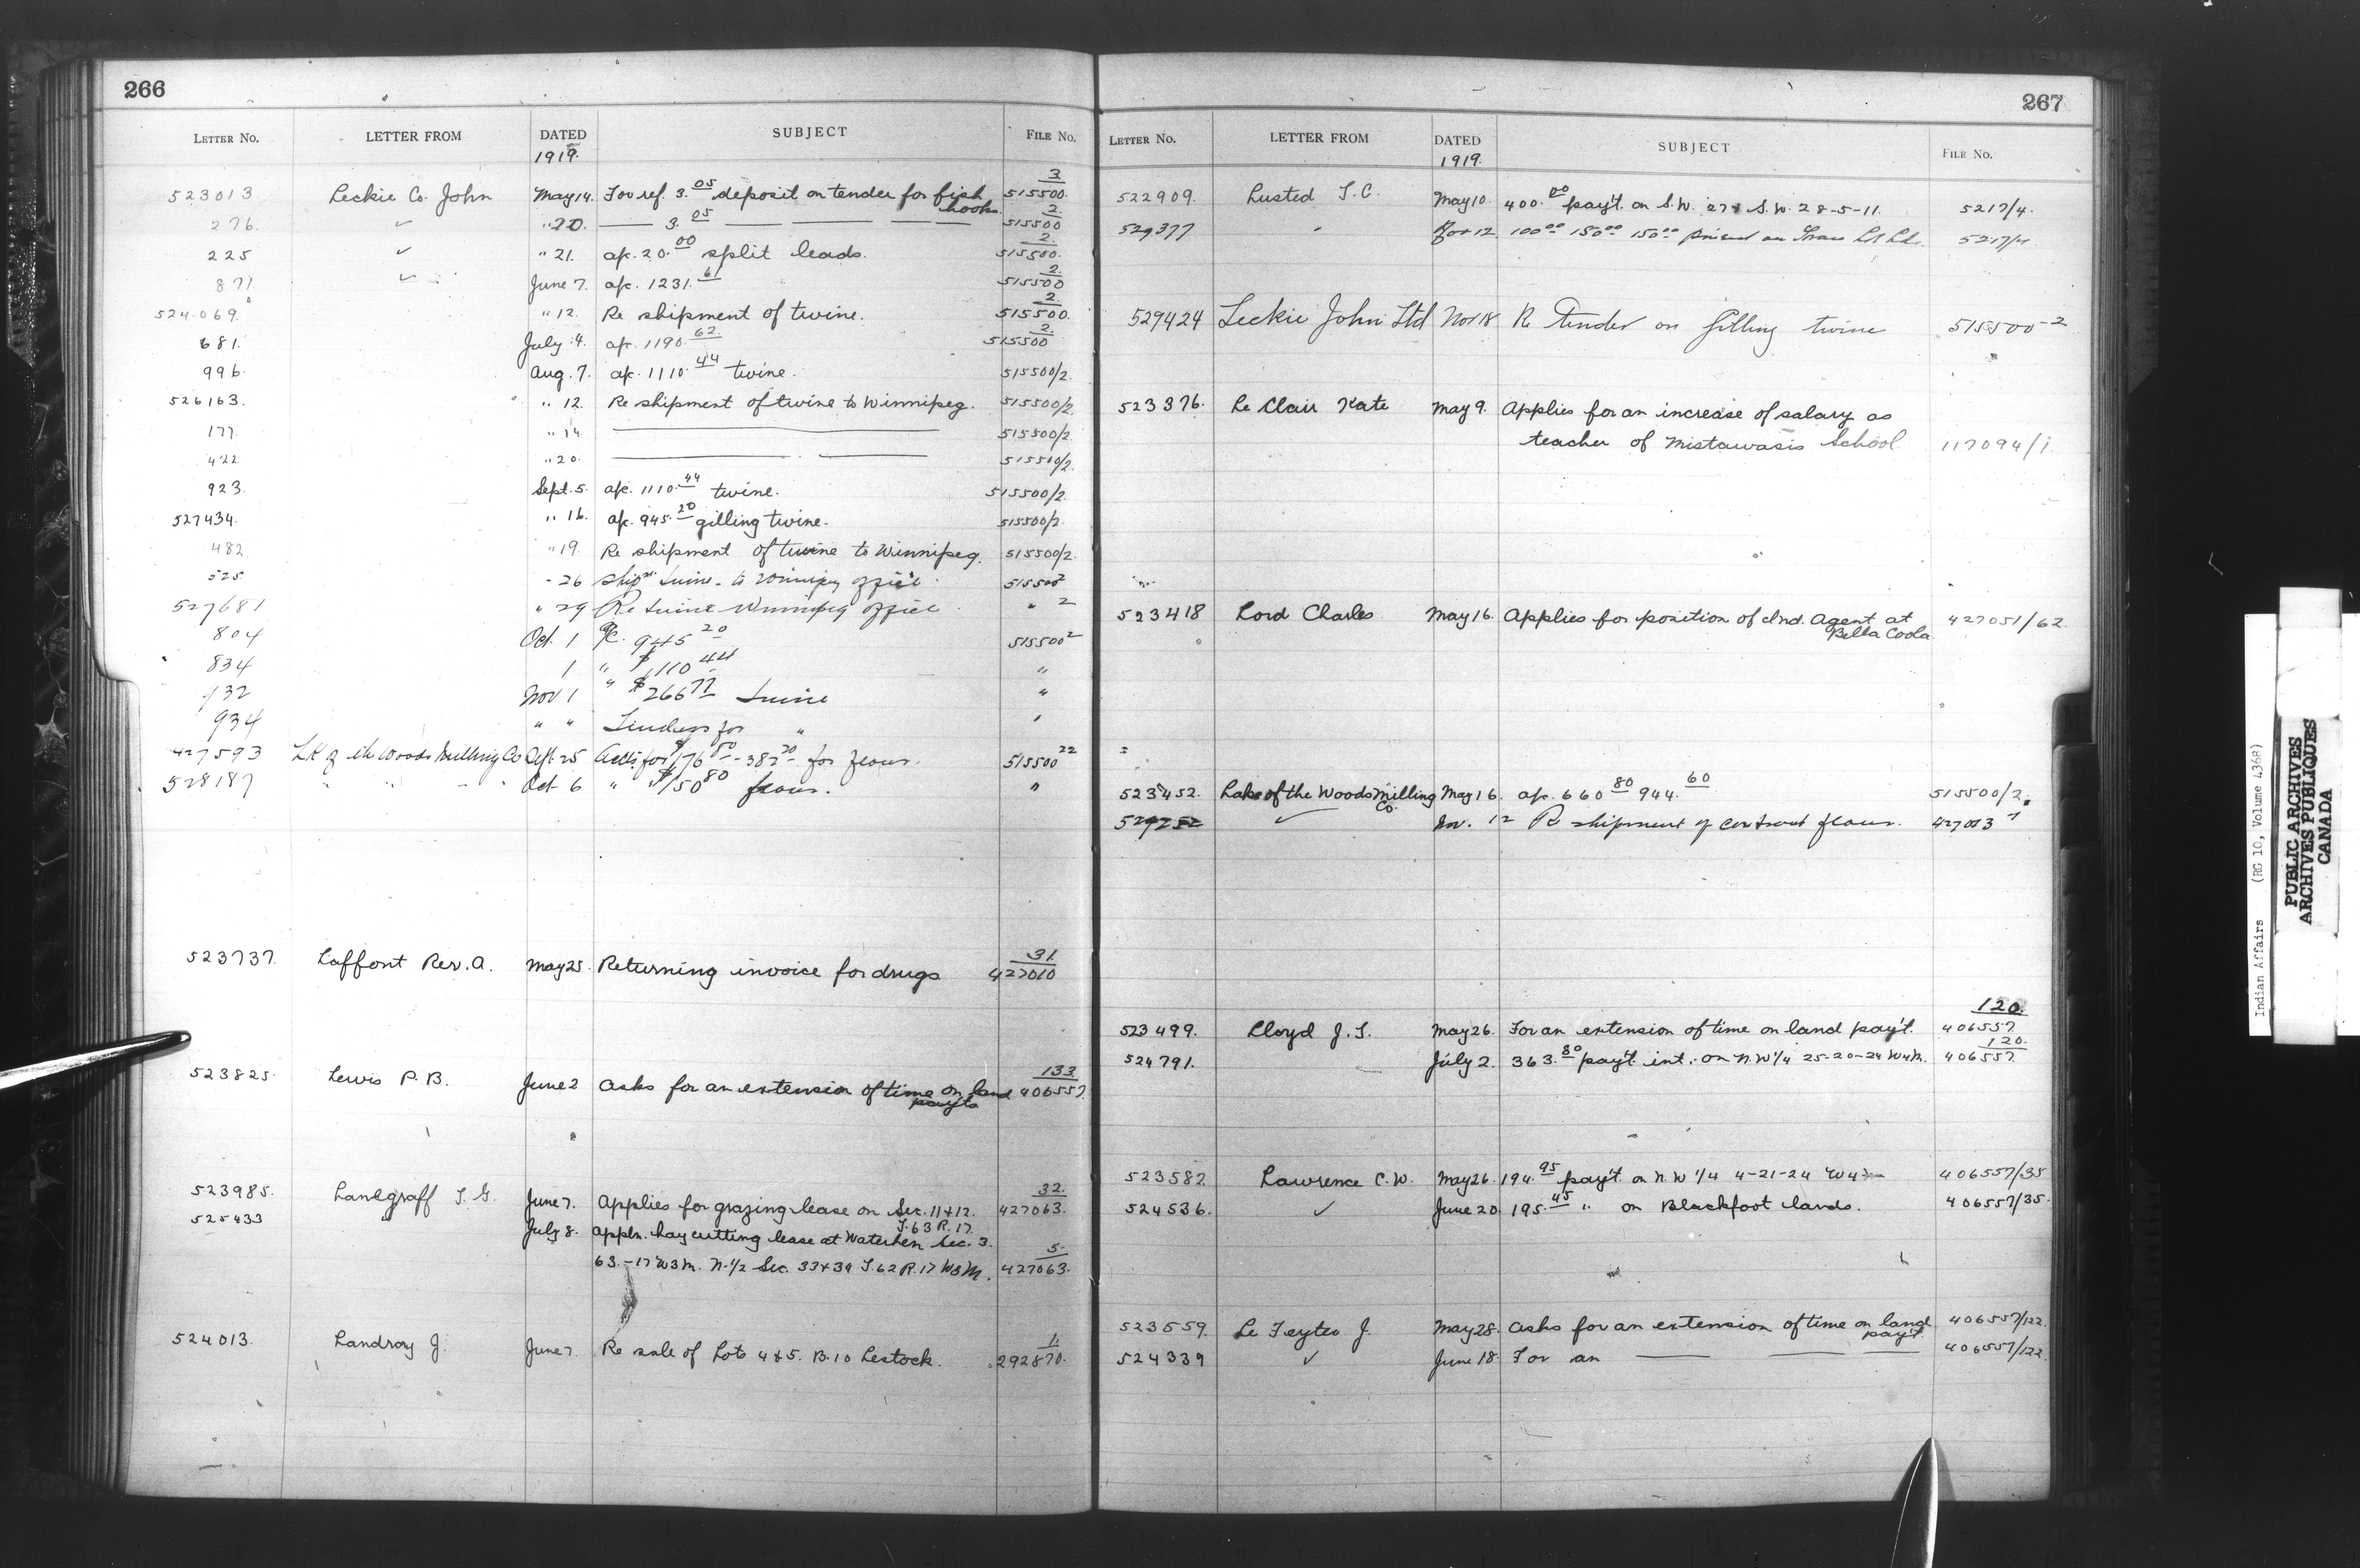 266
LETTER No. LETTER FROM DATED SUBJECT FILE No.
1919.
523013 Leckie Co. John May 14. For ref. 3.05 deposit on tender for fish hooks 3 515500.
276. ✓ " 20. — 3.05 — — — — 2. 515500
225 ✓ " 21. a/c. 20.00 split leads. 2. 515500.
877 ✓ June 7. a/c. 1231.61 2. 515500
524069. " 12. Re shipment of twine. 2. 515500.
681. July 4. a/c. 1190.62. 2. 515500
996. Aug. 7. a/c. 1110.44 twine. 515500/2.
526163. " 12. Re shipment of twine to Winnipeg. 515500/2
177. " 14. — 515500/2
422 " 20. — — 515500/2
923. Sept. 5. a/c. 1110.44 twine. 515500/2.
527434. " 16. a/c. 945.20 gilling twine. 515500/2.
482. " 19. Re shipment of twine to Winnipeg. 515500/2.
525. - 26 twine - to Winnipeg office. 515500 2
527681 " 29 Re twine Winnipeg office. " 2
804 Oct. 1 a/c. 945 20 515500 2
834 1 " $1,110 44 "
932 Nov 1 " $266 77 twine "
934 " " Tenders for " "
427593 LK of the Woods Milling Co Sept 25 for $176 80 - 382 20 for flour. 515500 22
528187 " " " " Oct 6 " $150 80 flour. "
523737. Laffont Rev. A. May 25. Returning invoice for drugs 31. 427010
523825. Lewis P. B. June 2 Asks for an extension of time on land payts 133. 406557
523985. Landgraff T. G. June 7. Applies for grazing lease on Sec. 11 & 12. T. 63 R. 17. 32. 427063.
525433 July 8. Appln. hay cutting lease at Waterhen Sec. 3.
63.-17 W3M. N. 1/2 Sec. 33 & 34 T. 62 R. 17 W3M. 5. 427063.
524013. Landroy J. June 7. Re sale of Lots 4 & 5. B. 10 Lestock. 1. 292870.
267
LETTER No. LETTER FROM DATED SUBJECT FILE No.
1919.
522909. Lusted T. C. May 10. 400.00 pay't. on S.W. 27 & S.W. 28-5-11. 5217/4.
529377 " Nov 12. 100 00 150 00 150 00 5217/4
529424 Leckie John Ltd Nov 18 Re Tender on Gilling twine 515500-2
523376. Le Clair Kate May 9. Applies for an increase of salary as
teacher of Mistawasis School. 117094/1.
523418 Lord Charles May 16. Applies for position of Ind. Agent at Bella Coola 427051/62.
523452. Lake of the Woods Milling Co. May 16. a/c. 660 80 944.60 515500/2.
529252 ✓ Nov. 12 Re shipment of contract flour. 427013
523499. Lloyd J. T. May 26. For an extension of time on land pay't. 120. 406557.
524791. July 2. 363.80 pay't. int. on N.W 1/4 25-20-24 W4M. 120. 406557.
523582 Lawrence C. W. May 26. 194.95 pay't. on N. W 1/4 4-21-24 W4 406557/35
524536. ✓ June 20. 195.45 " on Blackfoot lands. 406557/35.
523559. Le Feytes J. May 28. Asks for an extension of time on land pay't. 406557/122.
524339 ✓ June 18. For an — — — 406557/122.
Indian Affairs (RG 10, Volume 4368)
PUBLIC ARCHIVES
ARCHIVES PUBLIQUES
CANADA